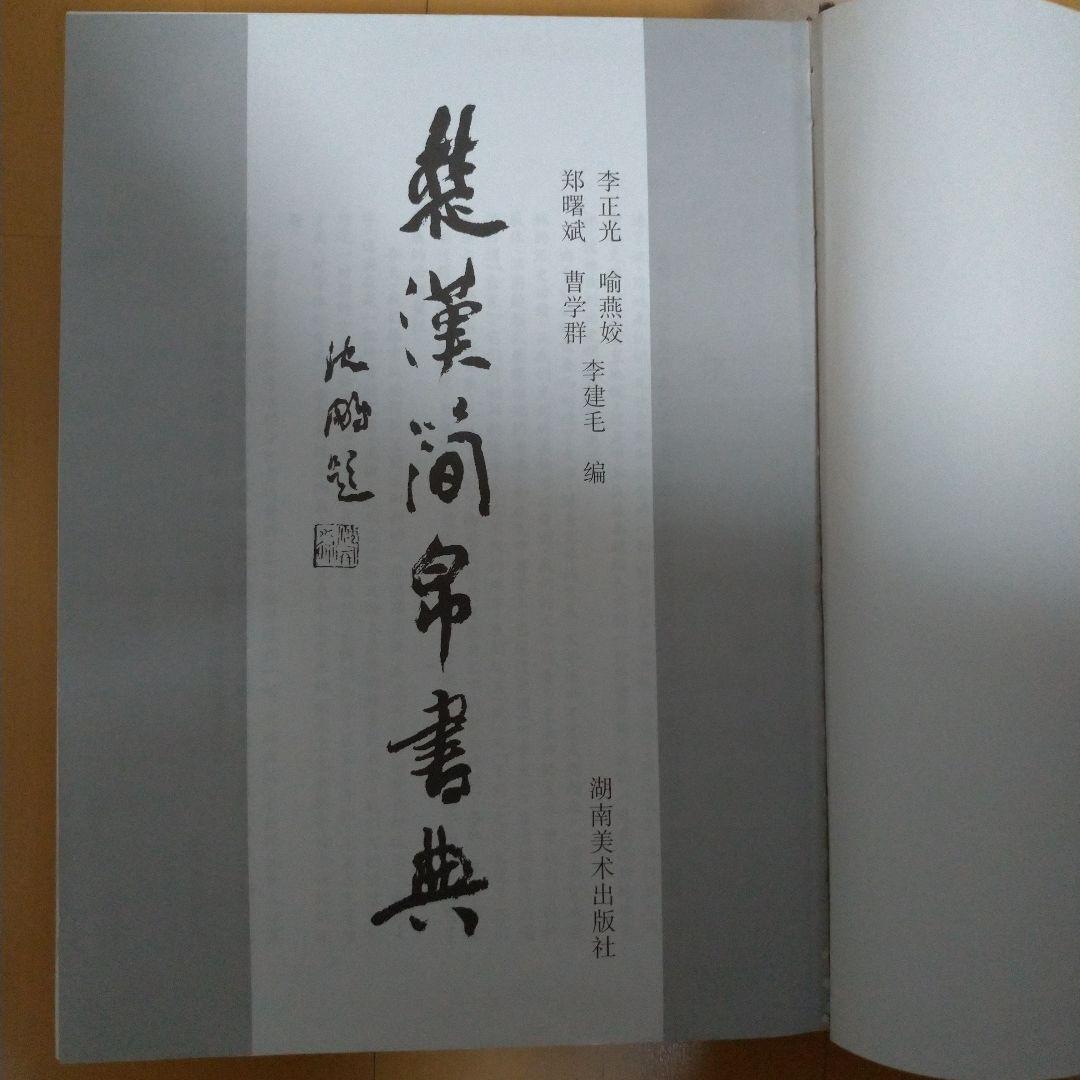 李正光 喻燕姣
郑曙斌 曹学群
李建毛 编
楚漢简帛書典
沈鹏题
湖南美术出版社